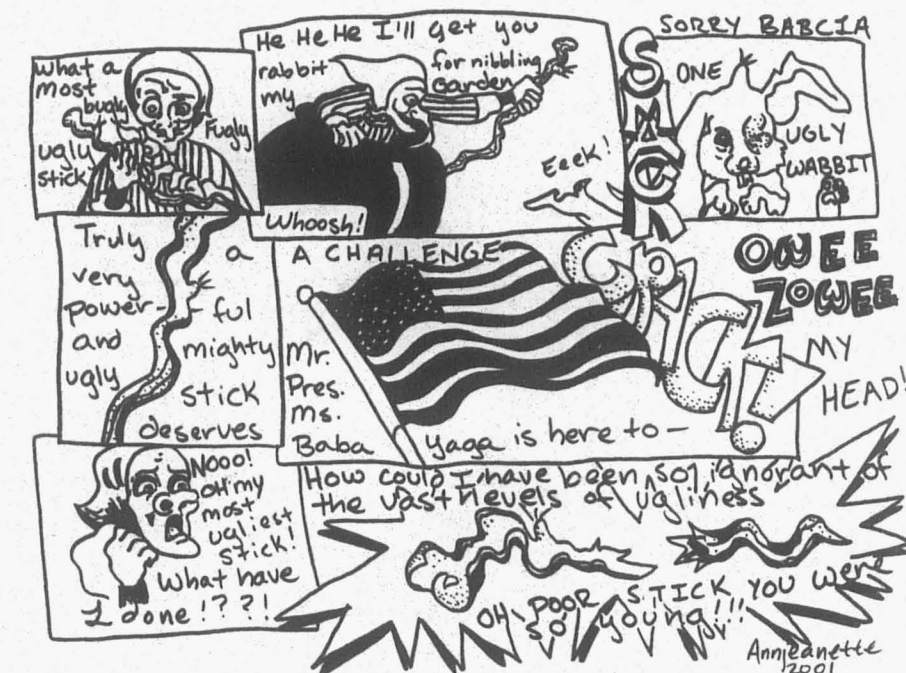 What a
most
bugly
ugly
stick
Fugly
He He He I'll get you
rabbit for nibbling
my Garden
Eeek!
Whoosh!
SMACK
SORRY BABCIA
ONE
UGLY
WABBIT
Truly a
very
power- -ful
and mighty
ugly stick
deserves
A CHALLENGE
Mr.
Pres.
Ms.
Baba Yaga is here to-
CRACK!
OWEE
ZOWEE
MY
HEAD!
NOOO!
OH my
most
ugliest
stick!
What have
I done!??!
How could I have been so ignorant of
the vast levels of ugliness
OH POOR STICK YOU were
SO young!!!
Annjeanette
2001